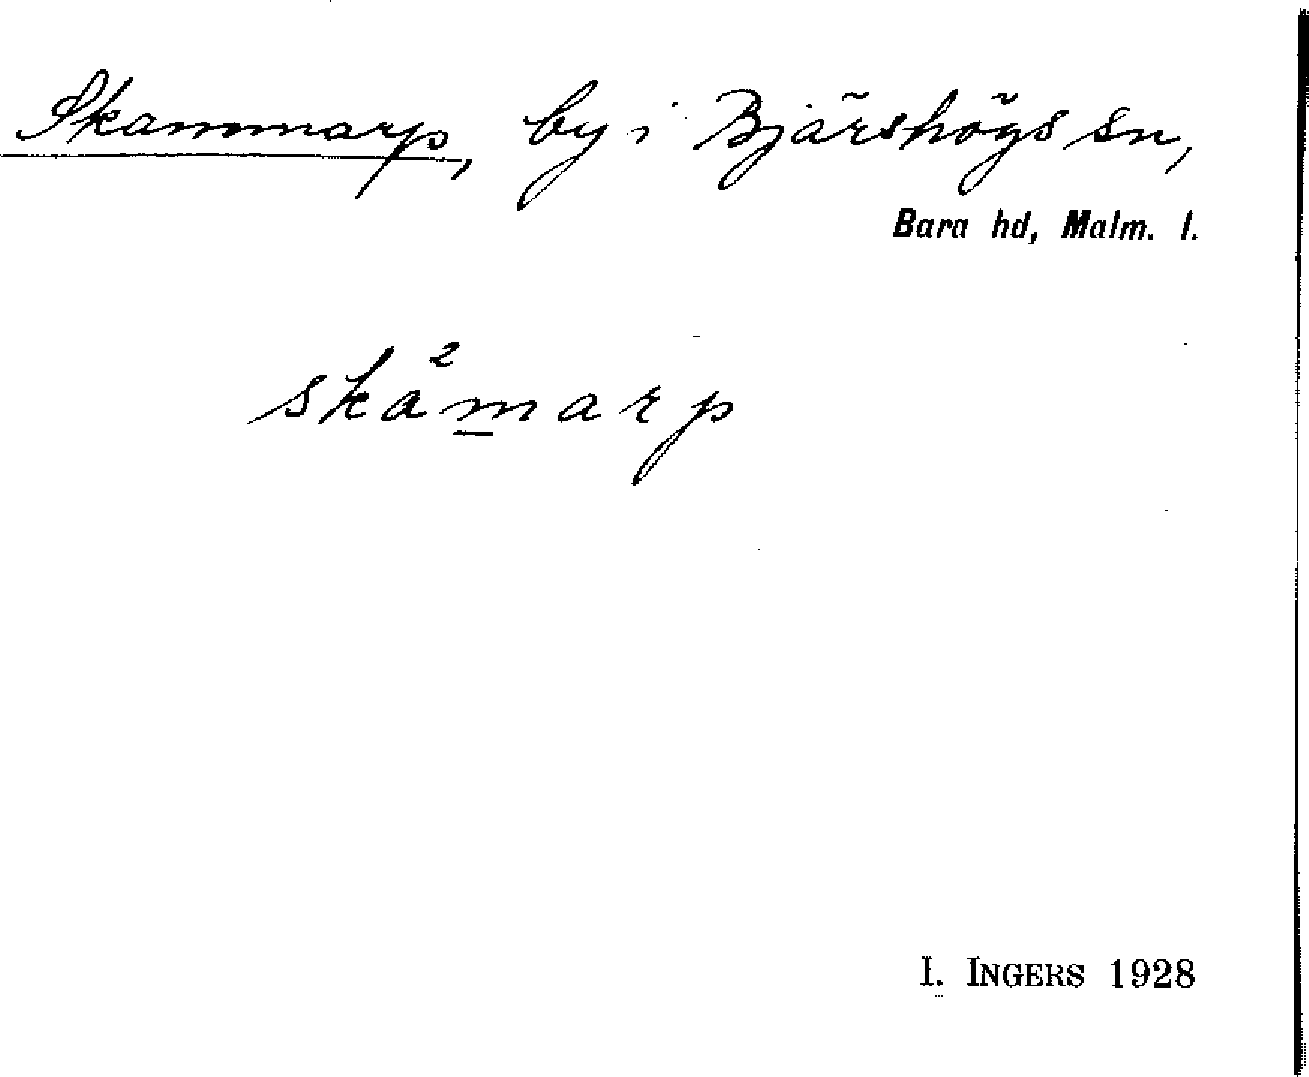 Skammarp, by i Bjärshögs sn,
Bara hd, Malm. l.
ska²m̲arp
I. INGERS 1928